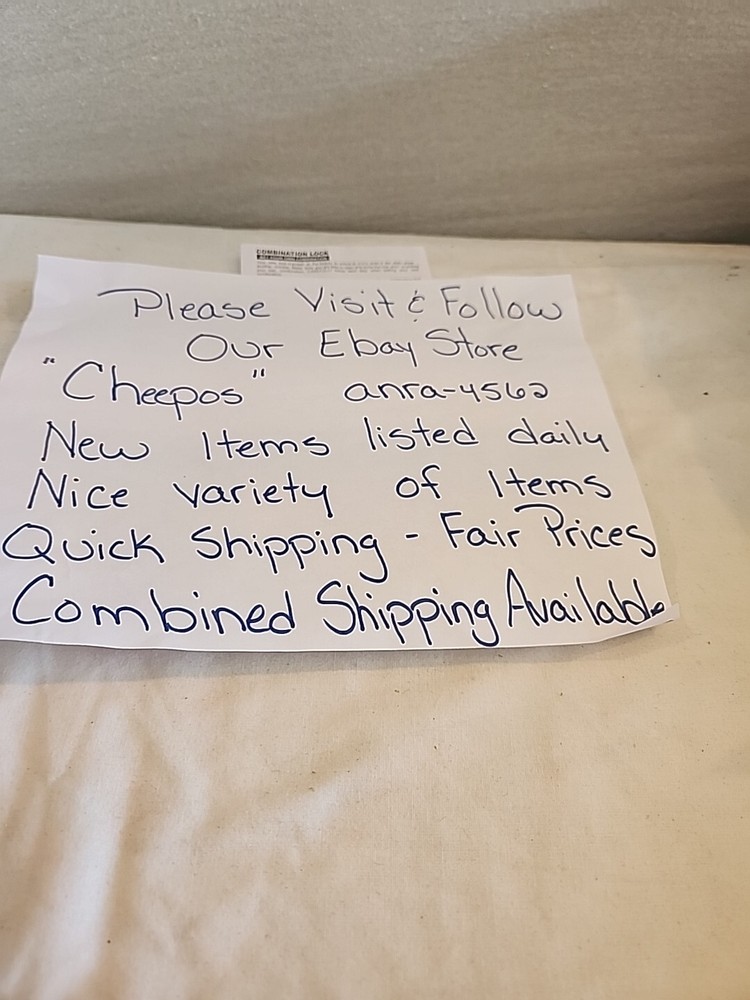 COMBINATION LOCK
Please Visit & Follow
Our Ebay Store
"Cheepos" anra-4562
New Items listed daily
Nice variety of Items
Quick Shipping - Fair Prices
Combined Shipping Available